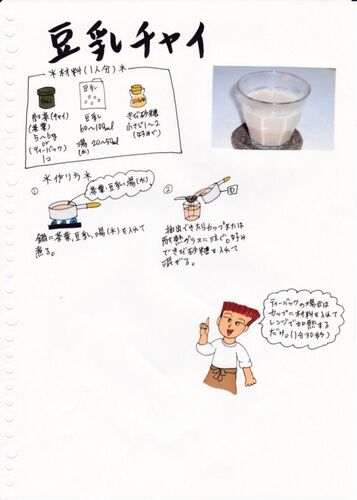 豆乳チャイ
＊材料(1人分)＊
紅茶(チャイ)
(茶葉)
5〜6g
or
(ティーバック)
1コ
豆乳
豆乳
60〜100ml
湯 20〜50ml
(水)
きび砂糖
小さじ1〜2
(お好みで)
＊作り方＊
①
茶葉・豆乳・湯(水)
鍋に茶葉、豆乳、湯(水)を入れて
煮る。
②
抽出できたらカップまたは
耐熱グラスに注ぐ。お好み
できび砂糖を入れて
混ぜる。
ティーバックの場合は
カップに材料を入れて
レンジで加熱する
だけ。(1分30秒)